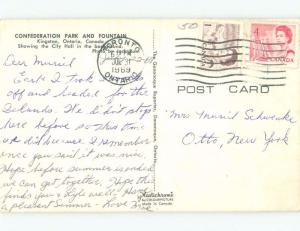 CONFEDERATION PARK AND FOUNTAIN
Kingston, Ontario, Canada
Showing the City Hall in the background.
Photo by
Dear Muriel
Earl & I took
off and headed for the
Islands. We didn't stop
here before so this time
we did because I remember
once you said it was nice.
Hope before summer is ended
we can get together. Hope this
finds you & Lyle well. Have
a pleasant Summer - Love
TORONTO
PM
JUL 31
1969
ONTARIO
50
CANADA
POST CARD
Mrs Muriel Schwenke
Otto, New York
Made in Canada